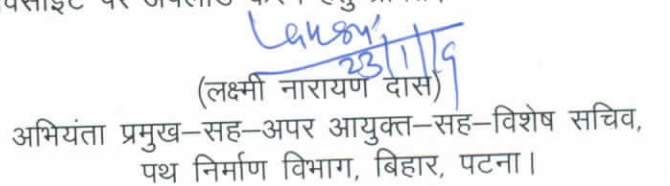 पर अपलोड करने हेतु
23/1/19
(लक्ष्मी नारायण दास)
अभियंता प्रमुख–सह–अपर आयुक्त–सह–विशेष सचिव,
पथ निर्माण विभाग, बिहार, पटना।